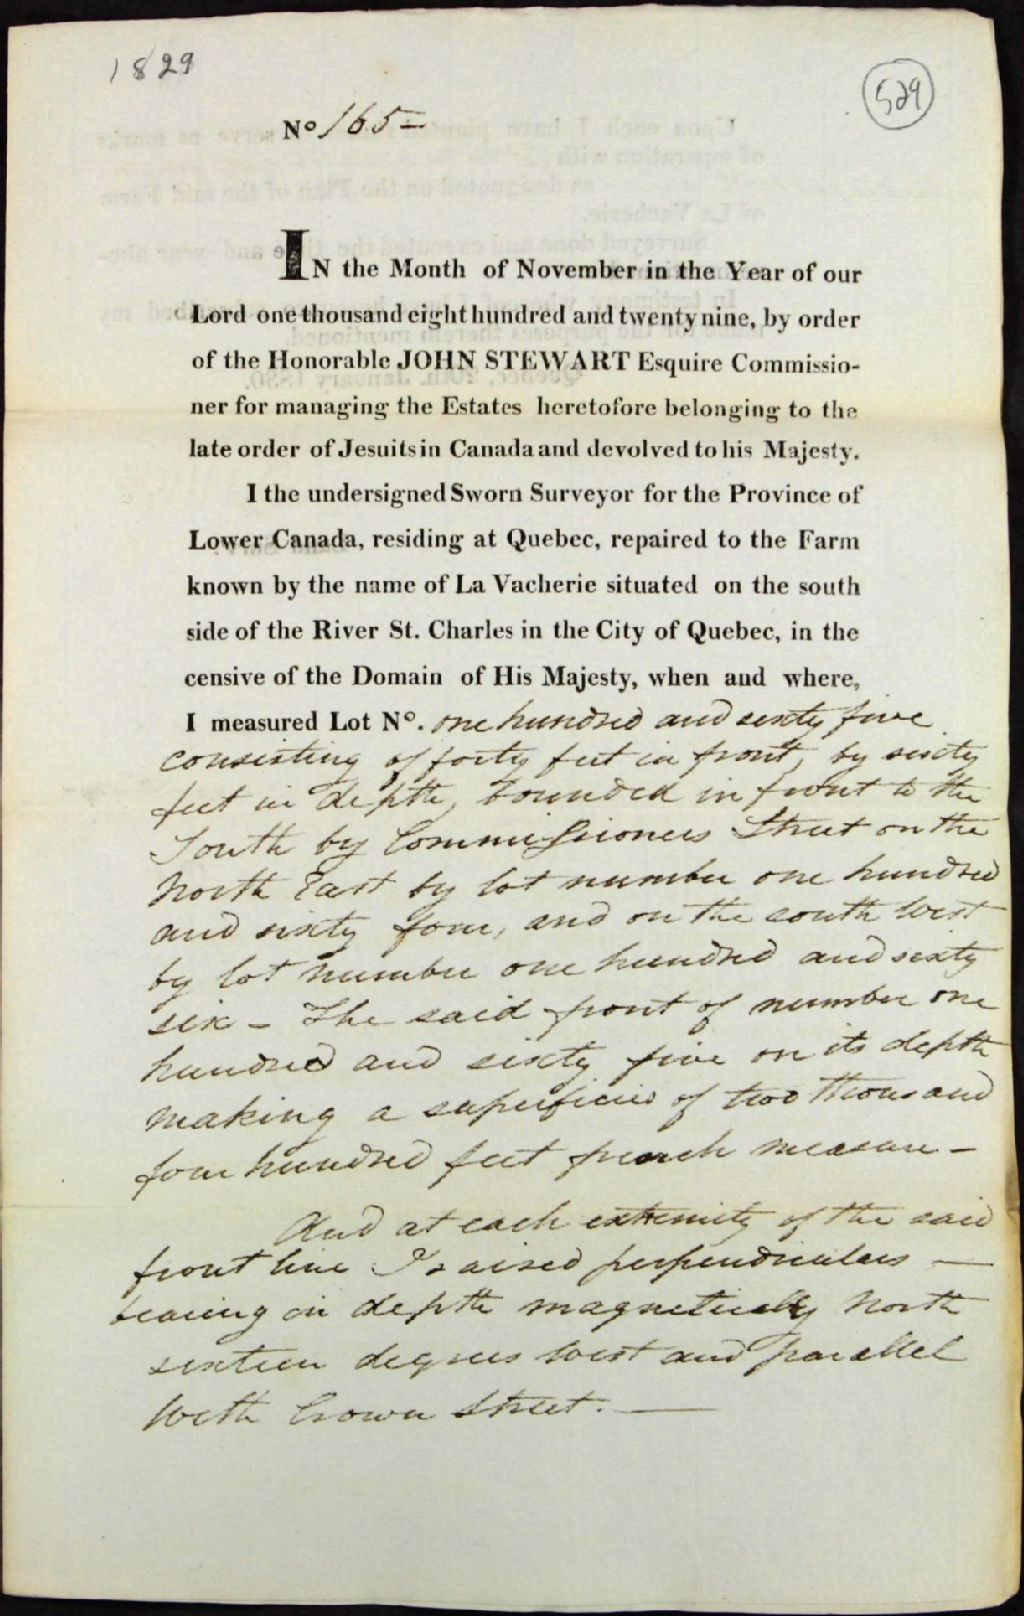 1829
529
No 165 –
IN the Month of November in the Year of our
Lord one thousand eight hundred and twenty nine, by order
of the Honorable JOHN STEWART Esquire Commissio-
ner for managing the Estates heretofore belonging to the
late order of Jesuits in Canada and devolved to his Majesty.
I the undersigned Sworn Surveyor for the Province of
Lower Canada, residing at Quebec, repaired to the Farm
known by the name of La Vacherie situated on the south
side of the River St. Charles in the City of Quebec, in the
censive of the Domain of His Majesty, when and where,
I measured Lot No. one hundred and sixty five
consisting of forty feet in front, by sixty
feet in depth, bounded in front to the
South by Commissioners Street on the
North East by lot number one hundred
and sixty four, and on the south West
by lot number one hundred and sixty
six – The said front of number one
hundred and sixty five on its depth
making a superficies of two thousand
four hundred feet french measure –
And at each extremity of the said
front line I raised perpendiculars —
bearing in depth magnetically North
sixteen degrees West and parallel
With Crown Street. —